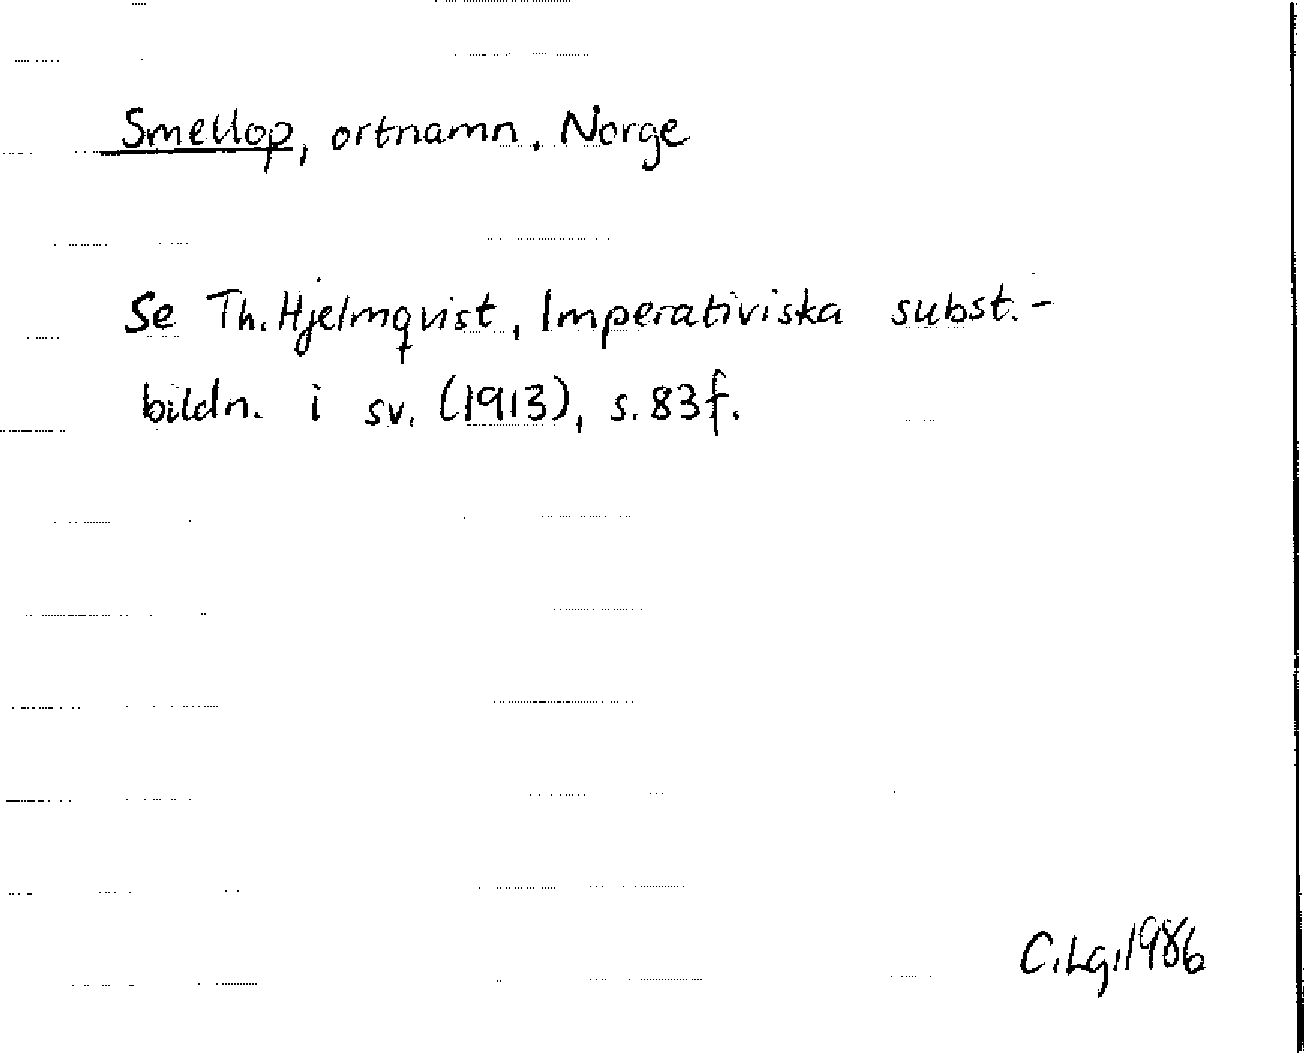 Smellop, ortnamn. Norge
Se Th. Hjelmqvist, Imperativiska subst.-
bildn. i sv. (1913), s. 83f.
C.Lg. 1986